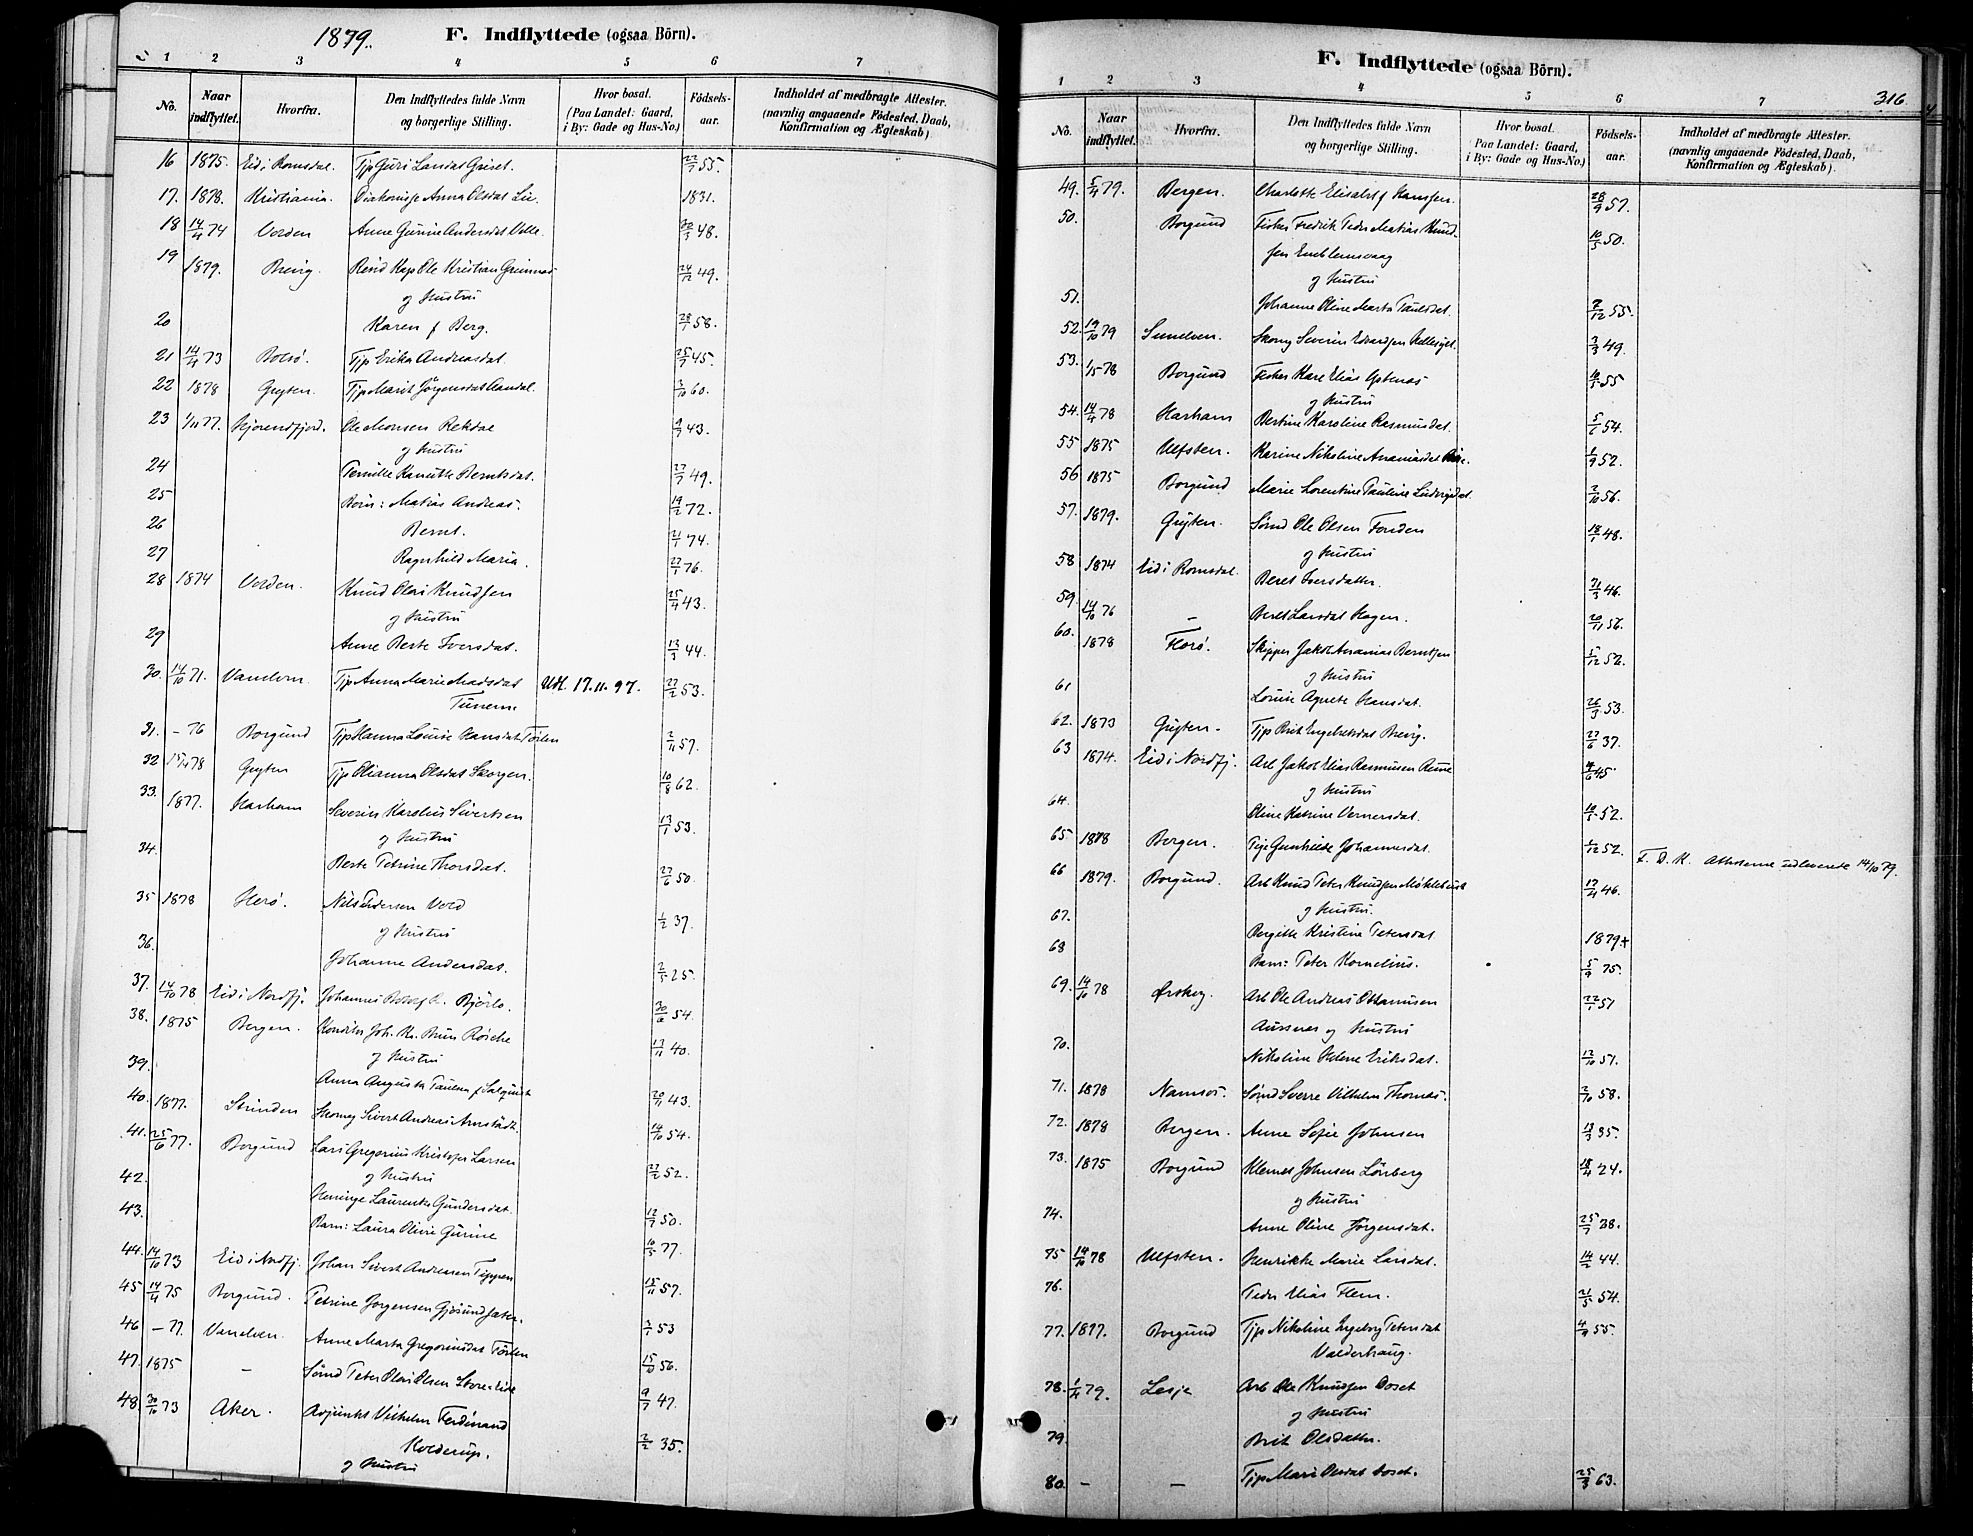 1879.
F. Indflyttede (ogsaa Börn).
1 2 3 4 5 6 7
No. Naar indflyttet. Hvorfra. Den Indflyttedes fulde Navn og borgerlige Stilling. Hvor bosat. (Paa Landet: Gaard, i By: Gade og Hus-No.) Fødsels-aar. Indholdet af medbragte Attester. (navnlig angaaende Fødested, Daab, Konfirmation og Ægteskab)
16 1875. Eid i Romsdal. Tjp Guri Larsdat Griset. 55.
17. 1878. Kristiania. Diakonisse Anna Olsdat Lie. 1831.
18 14/4 74 Volden Anne Gurine Andersdat Velle. 48.
19 1879. Brevig. Ole Kristian Grimnæs 24/12 49.
og Hustru
20 Karen f Berg. 58.
21 14/4 73 Bolsø. Tjp Erika Andreasdat 45.
22 1878 Grytten. Tjp Marit Jørgensdat Aandal. 3/10 60.
23 1/11 77. Hjørendfjord. Ole Monsen Rekdal 43.
og Hustru
24 Pernille Berntsdat. 49.
25 Børn: Matias Andreas. 19/2 72.
26 Bernt. 21/1 74.
27 Ragnhild Maria. 76.
28 1874 Volden. Knud Olai Knudsen 25/4 43.
og Hustru
29 Anne Berte Iversdat. 13/3 44.
30. 14/10 71. Vanelven. Tjp Anna Marie Madsdat Udt. 17.11.97. 27/2 53.
31. - 76 Borgund Tjp Hanna Louise Hansdat 2/11 57.
32 78 Grytten Tjp Olianna Olsdat Skorgen. 10/8 62.
33. 1877. Harham Severin Karolius Sivertsen 13/1 53.
og Hustru
34. Berte Petrine Thorsdat. 27/6 50.
35 1878 Herø. Nils Pedersen Vold 1/2 37.
og Hustru
36. Johanne Andersdat. 2/5 25.
37. 14/10 78 Eid i Nordfj. Johannes Bjørlo. 30/6 54.
38. 1875 Bergen. Konditor Joh. Kr. Brun Røsche 13/11 40.
og Hustru
39. Anna Augusta Paulina f 20/11 43.
40. 1877. Strinden Skomag Sivert Andreas Arnstadt. 14/10 54.
41. 25/6 77. Borgund Lars Gregorius Kristofer Larsen 27/2 52.
og Hustru
42. Laurentse Gundersdat. 12/7 50.
43. Barn: Laura Oline Gurine 10/5 77.
44. 14/10 73 Eid i Nordfj. Johan Sivert Andreassen 15/11 57.
45 14/4 75 Borgund. Petrine Jørgensen 53
46 - 77. Vanelven. Anne Marta Gregoriusdat 15/10 56.
47. 1875 - Sømd Peter Olai Olsen Store-Eide 9/7 47.
48 30/10 73 Aker. Adjunkt Vilhelm Ferdinand 2/2 35.
Kolderup.
og Hustru
F. Indflyttede (ogsaa Börn).
316.
1 2 3 4 5 6 7
No. Naar indflyttet. Hvorfra. Den Indflyttedes fulde Navn og borgerlige Stilling. Hvor bosat. Paa Landet: Gaard, i By: Gade og Hus-No.) Fødsels-aar. Indholdet af medbragte Attester. (navnlig angaaende Fødested, Daab, Konfirmation og Ægteskab).
49. 5/4 79. Bergen. Charlotte Elisabet f Hanssen. 28/9 57.
50. Borgund Fisker Fredrik Peder Matias Knud- 10/5 50.
sen Emblemsvaag
og Hustru
51. Johanne Oline Marta Paulsdat. 7/12 55.
52. 19/10 79 Sunelven. Skomg Severin Edvardsen Hellesylt. 3/3 49.
53. 1/5 78 Borgund Fisker Kare Elias 55
og Hustru
54. 14/4 78 Harham Bertine Karoline Rasmusdat. 54.
55 1875 Ulfsten. Karine Nikoline Ananiasdat 1/9 52.
56 1875 Borgund Marie Lorentine Pauline Ludvigsdat. 2/10 56.
57. 1879. Grytten. Sømd Ole Olsen Fonden 18/1 48.
og Hustru
58 1874 Eid i Romsdal. Beret Iversdatter. 21/3 46.
59. 14/10 76 - Beret Larsdat Hagen. 20/11 56.
60. 1878 Florø. Skipper Jakob Ananias Berntsen 5/12 52.
og Hustru
61 Louise Agnete Hansdat. 26/3 53.
62. 1873 Grytten. Tjp Brit Engebretsdat Brevig. 27/6 37.
63 1874. Eid i Nordfj. Arb Jakob Elias Rasmussen 4/6 45
og Hustru
64. Oline Katrine Vernersdat. 52.
65 1878 Bergen. Tjp Gunhilde Johannesdat. 52. F. D. K. Attesterne udleverede 14/10 79.
66 1879. Borgund. Arb Knud Peter Knudsen Møklebust 17/4 46.
og Hustru.
67. Bergitte Kristine Petersdat 1879+
68 Barn: Peter Kornelius. 5/9 75.
69. 14/10 78 Ørskog. Arb Ole Andreas 51
og Hustru
70. Nikoline Helene Eriksdat. 12/10 51.
71. 1878 Namsos. Sømd Sverre Vilhelm Thomas. 2/10 58.
72. 1878 Bergen. Anne Sofie Johnsen 13/3 35.
73. 1875 Borgund Klemet Johnsen Lönberg 18/4 24.
og Hustru
74. Anne Oline Jørgensdat. 25/7 38.
75 14/10 78 Ulfsten. Henrikke Marie Larsdat. 14/2 44.
76. Peder Elias Flem. 21/5 54.
77. 1877. Borgund Tjp Nikoline Ingeborg Petersdat 4/9 55.
Valderhaug.
78. 1/4 79. Lesje Arb Ole Knudsen Doset
og Hustru
79. Brit Olsdatter.
80. - - Tjp Mari Olsdat Doset. 25/3 63.